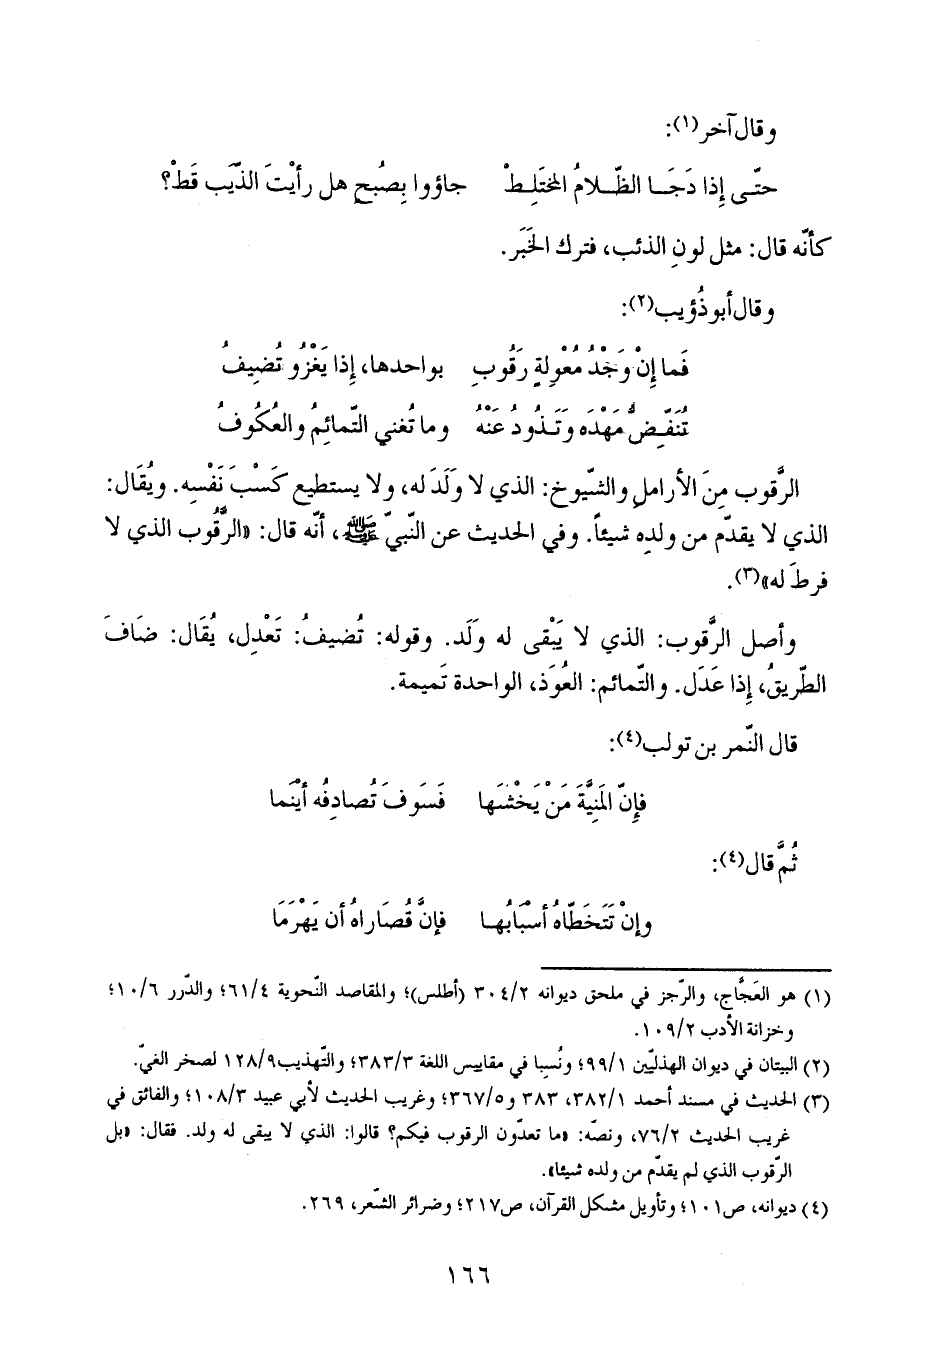 وقال آخر(١):
حتّى إِذا دَجَا الظّلامُ المختَلِطْ    جاؤوا بِصُبحٍ هل رأيْتَ الذّيَب قَطْ؟
كأنّه قال: مثل لونِ الذئب، فترك الخَبَر.
وقال أبو ذُؤيب(٢):
فَما إِنْ وَجْدُ مُعْوِلةٍ رَقُوبٍ    بواحدها، إِذا يَغْزُو تُضِيفُ
تُنَفِّضُ مَهْدَه وَتَذُودُ عَنْهُ    وما تُغني التّمائِمُ والعُكُوفُ
الرَّقوب مِنَ الأراملِ والشّيوخ: الذي لا وَلَدَ له، ولا يستطيع كَسْبَ نَفْسِه. ويُقَال:
الذي لا يقدّم من ولدِه شيئاً. وفي الحديث عن النّبيّ ﷺ، أنّه قال: «الرَّقُوب الذي لا
فرطَ له»(٣).
وأصل الرَّقوب: الذي لا يَبْقى له وَلَد. وقوله: تُضيفُ: تَعْدِل، يُقَال: ضَافَ
الطّريقُ، إِذا عَدَل. والتّمائم: العُوَذ، الواحدة تَميمة.
قال النّمر بن تولب(٤):
فإِنّ المَنِيَّةَ مَنْ يَخْشَها    فَسَوفَ تُصادِفُه أيْنَما
ثُمَّ قال(٤):
وإِنْ تَتَخطّاهُ أسْبَابُها    فإنَّ قُصَاراهُ أن يَهْرَمَا
(١) هو العَجَّاج، والرّجز في ملحق ديوانه ٣٠٤/٢ (أطلس)؛ والمقاصد النّحوية ٦١/٤؛ والدّرر ١٠/٦؛
وخزانة الأدب ١٠٩/٢.
(٢) البيتان في ديوان الهذليّين ٩٩/١؛ ونُسِبا في مقاييس اللغة ٣٨٣/٣؛ والتّهذيب ١٢٨/٩ لصخر الغيّ.
(٣) الحديث في مسند أحمد ٣٨٢/١، ٣٨٣ و٣٦٧/٥؛ وغريب الحديث لأبي عبيد ١٠٨/٣؛ والفائق في
غريب الحديث ٧٦/٢، ونصّه: «ما تعدّون الرقوب فيكم؟ قالوا: الذي لا يبقى له ولد. فقال: «بل
الرّقوب الذي لم يقدّم من ولده شيئا».
(٤) ديوانه، ص١٠١؛ وتأويل مشكل القرآن، ص٢١٧؛ وضرائر الشّعر، ٢٦٩.
١٦٦